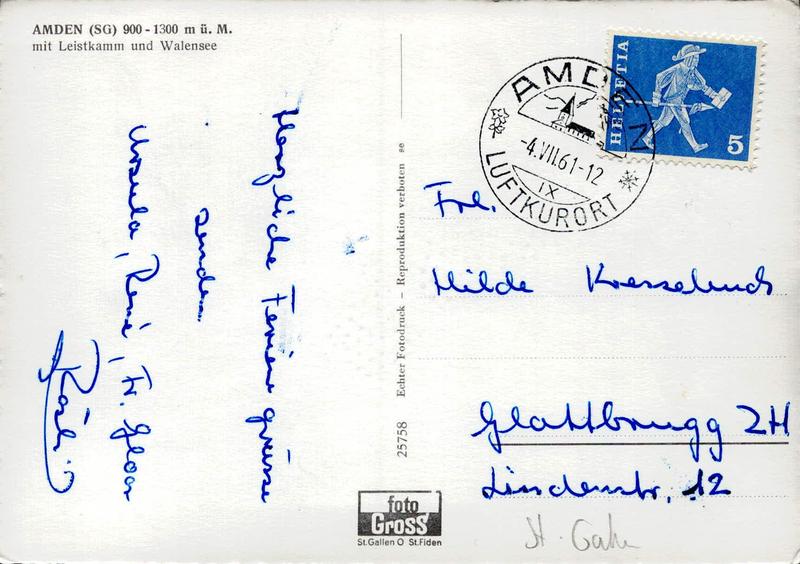 AMDEN (SG) 900 - 1300 m ü. M.
mit Leistkamm und Walensee
Herzliche Feriengrüsse
senden
Ursula, René, Fr. Gloor
Echter Fotodruck – Reproduktion verboten se
25758
foto
GROSS
St.Gallen O St.Fiden
HELVETIA
5
AMDEN
-4.VII.61-12
IX
LUFTKURORT
Frl.
Hilde
Glattbrugg ZH
Lindenstr. 12